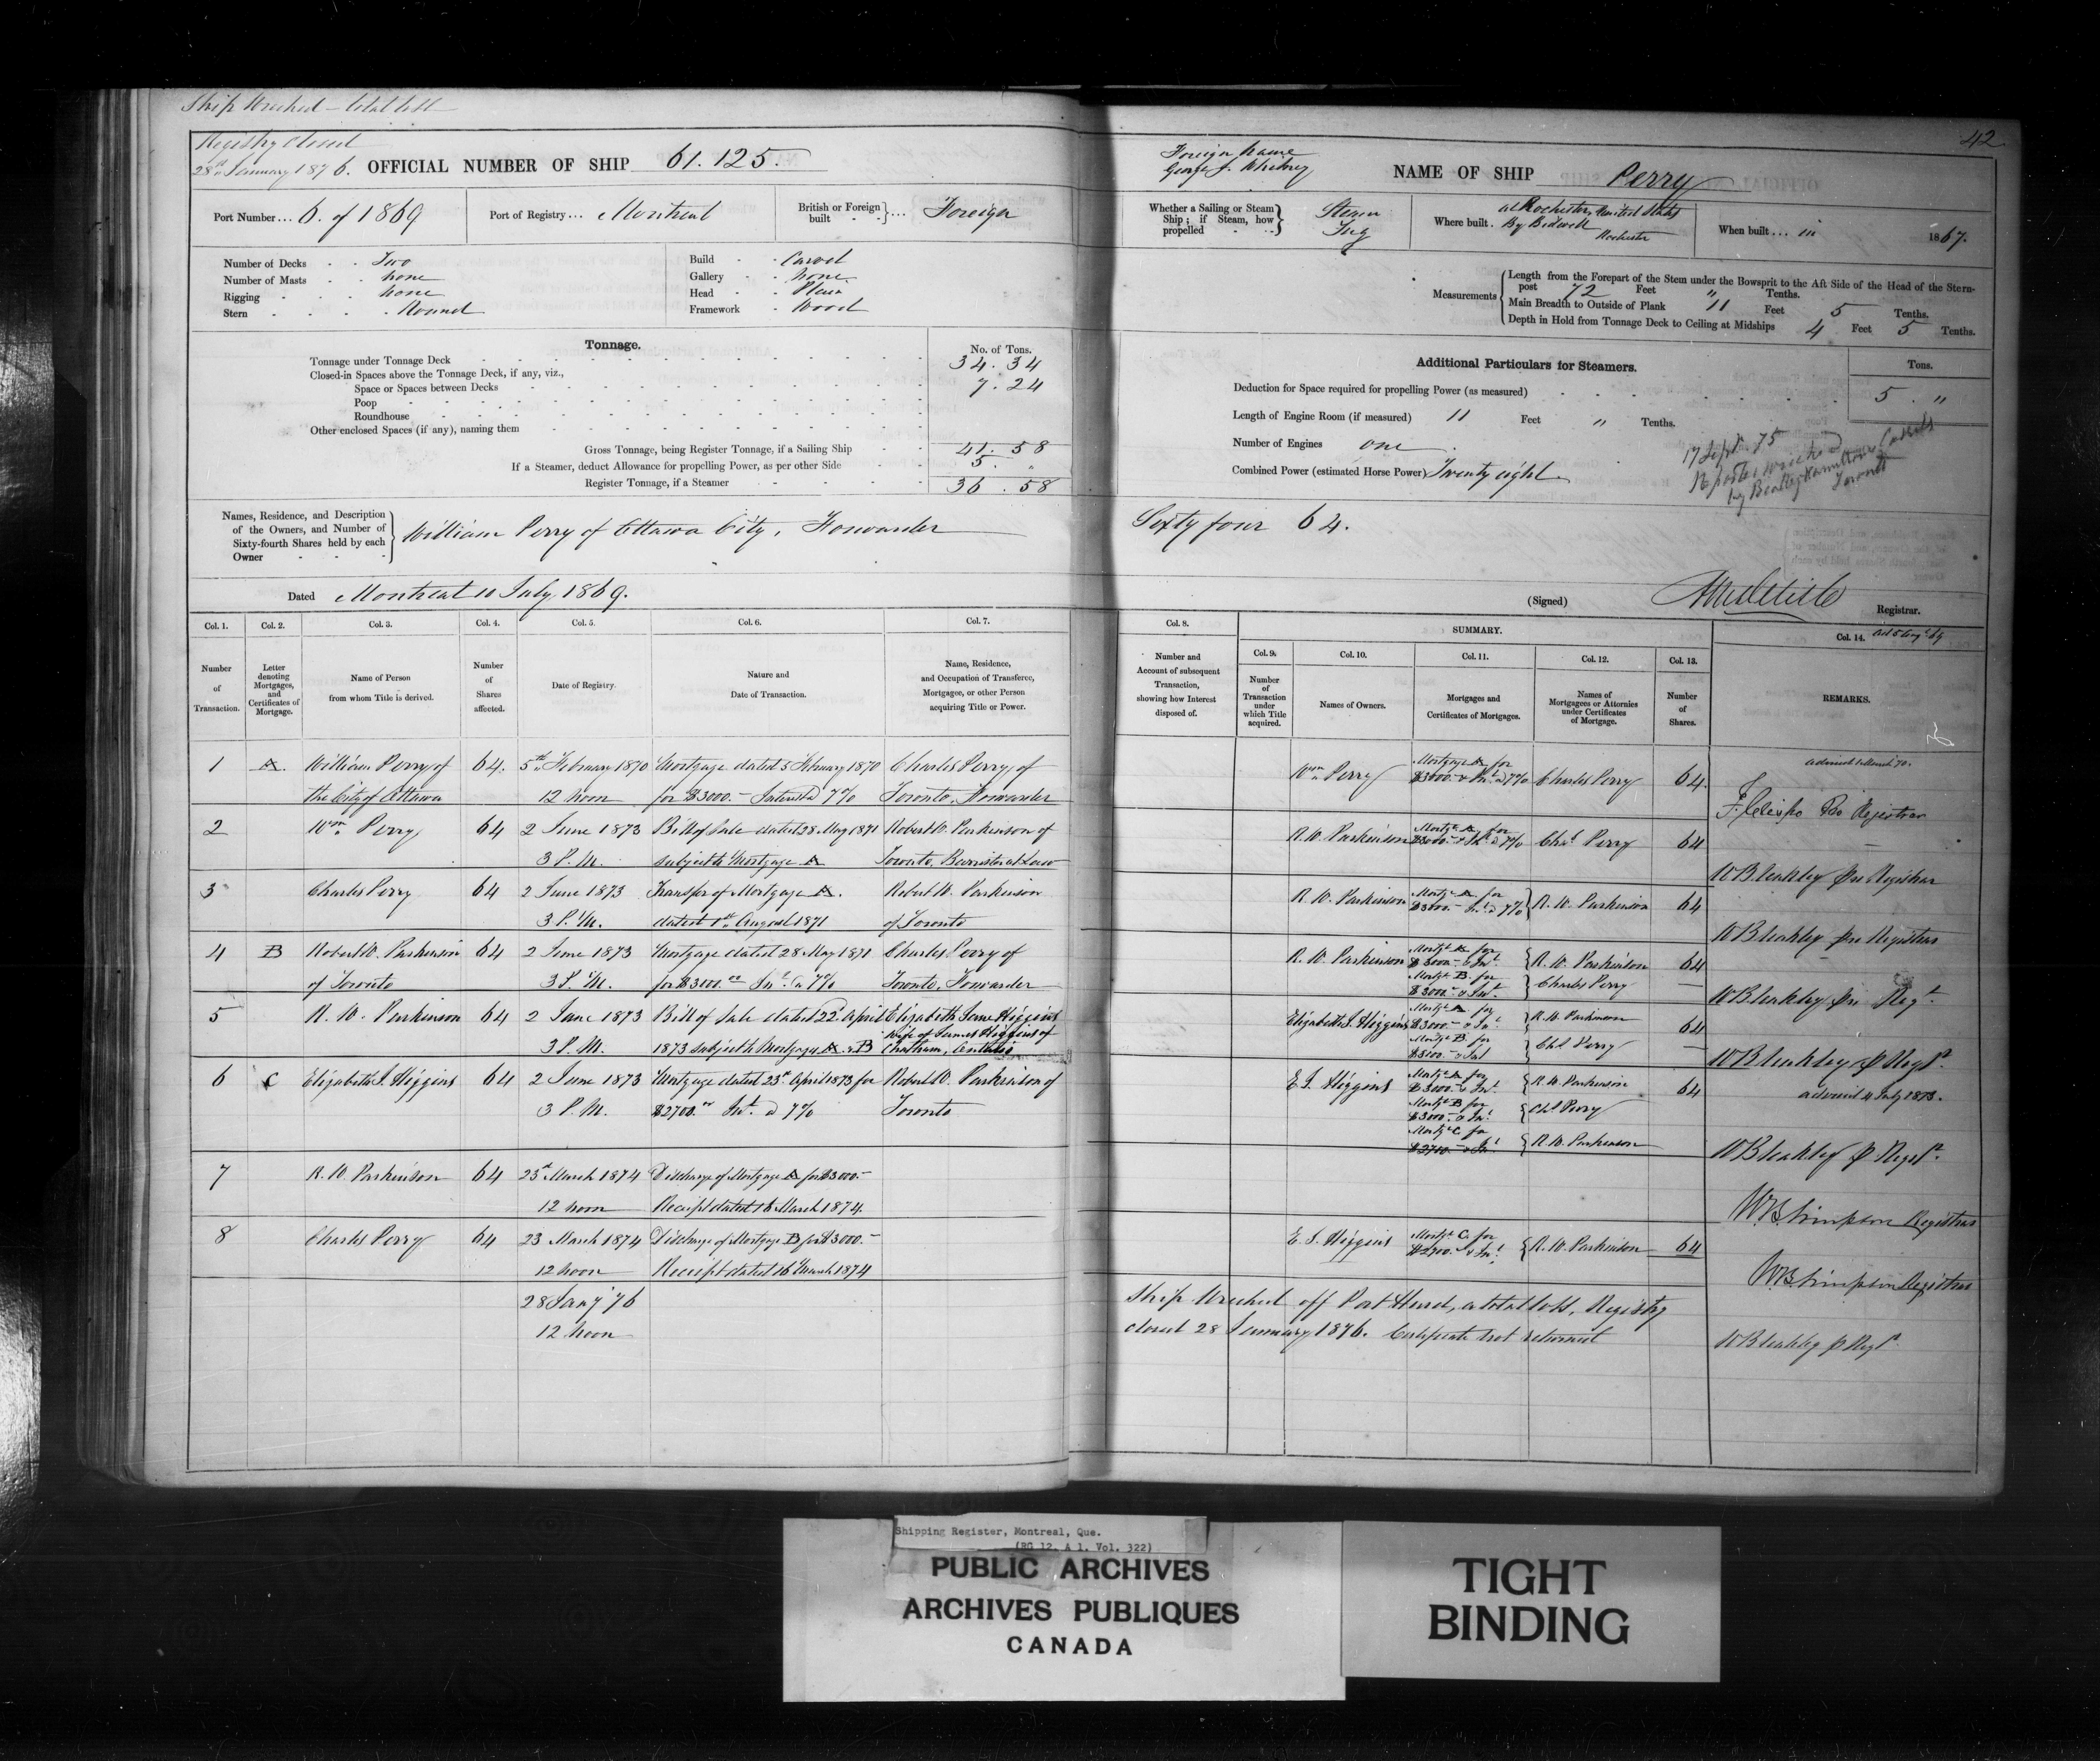 Ship Wrecked - total loss
Registry Closed
28th January 1876.
OFFICIAL NUMBER OF SHIP 61.125.
Port Number... 6. of 1869
Port of Registry... Montreal
British or Foreign built ... Foreign
Number of Decks Two
Number of Masts None
Rigging None
Stern Round
Build Carvel
Gallery None
Head Plain
Framework Wood
Tonnage.
No. of Tons.
Tonnage under Tonnage Deck 34.34
Closed-in Spaces above the Tonnage Deck, if any, viz.,
Space or Spaces between Decks 7.24
Poop
Roundhouse
Other enclosed Spaces (if any), naming them
Gross Tonnage, being Register Tonnage, if a Sailing Ship 41.58
If a Steamer, deduct Allowance for propelling Power, as per other Side 5. "
Register Tonnage, if a Steamer 36.58
Names, Residence, and Description of the Owners, and Number of Sixty-fourth Shares held by each Owner
William Perry of Ottawa City, Forwarder
Dated Montreal 10 July, 1869.
Col. 1. Col. 2. Col. 3. Col. 4. Col. 5. Col. 6. Col. 7.
Number of Transaction.
Letter denoting Mortgages, and Certificates of Mortgage.
Name of Person from whom Title is derived.
Number of Shares affected.
Date of Registry.
Nature and Date of Transaction.
Name, Residence, and Occupation of Transferee, Mortgagee, or other Person acquiring Title or Power.
1 A. William Perry of 64. 5th February 1870 Mortgage dated 5 February 1870 Charles Perry, of
the City of Ottawa 12 noon for $3000.- Interest @ 7% Toronto, Forwarder
2 Wm Perry 64 2 June 1873 Bill of Sale dated 28 May 1871 Robert W. Parkinson of
3 P.M. subject to Mortgage A Toronto, Barrister at Law
3 Charles Perry 64 2 June 1873 Transfer of Mortgage A. Robert W. Parkinson
3 P.M. dated 1st August 1871 of Toronto
4 B Robert W. Parkinson 64 2 June 1873 Mortgage dated 28 May 1871 Charles Perry of
of Toronto 3 P.M. for $3000.00 Int. @ 7% Toronto, Forwarder
5 R. W. Parkinson 64 2 June 1873 Bill of Sale dated 22 April Elizabeth Jane Higgins
3 P.M. 1873 subject to Mortgages A & B Wife of James Higgins of
Chatham, Ontario
6 C Elizabeth J. Higgins 64 2 June 1873 Mortgage dated 23d April 1873 for Robert W. Parkinson of
3 P.M. $2700.00 Int. @ 7% Toronto
7 R. W. Parkinson 64 23d March 1874 Discharge of Mortgage A for $3000.-
12 noon Receipt dated 16 March 1874.
8 Charles Perry 64 23 March 1874 Discharge of Mortgage B for $3000.-
12 noon Receipt dated 16 March 1874
28 Jany '76
12 noon
42
Foreign Name
George J. Whitney
NAME OF SHIP Perry
Whether a Sailing or Steam Ship; if Steam, how propelled
Steam
Tug
Where built. at Rochester, United States
By Bidwell
Rochester
When built... in 1867.
Measurements
Length from the Forepart of the Stem under the Bowsprit to the Aft Side of the Head of the Stern-
post 72 Feet " Tenths.
Main Breadth to Outside of Plank 11 Feet 5 Tenths.
Depth in Hold from Tonnage Deck to Ceiling at Midships 4 Feet 5 Tenths.
Additional Particulars for Steamers.
Tons.
Deduction for Space required for propelling Power (as measured) 5. "
Length of Engine Room (if measured) 11 Feet " Tenths.
Number of Engines one
Combined Power (estimated Horse Power) Twenty eight
17 Sept. 75
Reported wrecked
by Beatty Hamilton &
Toronto
Sixty four 64.
(Signed)
Registrar.
Col. 8.
SUMMARY.
Col. 9. Col. 10. Col. 11. Col. 12. Col. 13. Col. 14.
Number and Account of subsequent Transaction, showing how Interest disposed of.
Number of Transaction under which Title acquired.
Names of Owners.
Mortgages and Certificates of Mortgages.
Names of Mortgagees or Attornies under Certificates of Mortgage.
Number of Shares.
REMARKS.
Wm Perry Mortgage A for
$3000.- & Int. @ 7% Charles Perry 64.
R. W. Parkinson Mortge A for
$3000.- & Int. @ 7% Chas Perry 64
WBleakley pro Registrar
R. W. Parkinson Mortge A for
$3000.- Int. @ 7% R. W. Parkinson 64
WBleakley pro Registrar
R. W. Parkinson Mortge A for
$3000.- & Int. R. W. Parkinson 64
Mortge B. for
$3000.- & Int. Charles Perry
WBleakley pro Regr.
Elizabeth J. Higgins Mortge A for
$3000.- & Int. R. W. Parkinson 64
Mortge B. for
$3000.- & Int Chs Perry
WBleakley p Regr.
advised 4 July 1873.
E J. Higgins Mortge A for
$3000.- & Int. R. W. Parkinson 64
Mortge B for
$3000.- & Int. Chs Perry
Mortge C. for
$2700.- & Int. R. W. Parkinson
WBleakley p Regr.
WBSimpson Registrar
E. J. Higgins Mortge C. for
$2700.- & Int. R. W. Parkinson 64
WBSimpson Registrar
Ship Wrecked off Port Hurd, a total loss, Registry
closed 28 January 1876. Certificate not returned
WBleakley p Regr.
Shipping Register, Montreal, Que.
(RG 12, A 1, Vol. 322)
PUBLIC ARCHIVES
ARCHIVES PUBLIQUES
CANADA
TIGHT
BINDING